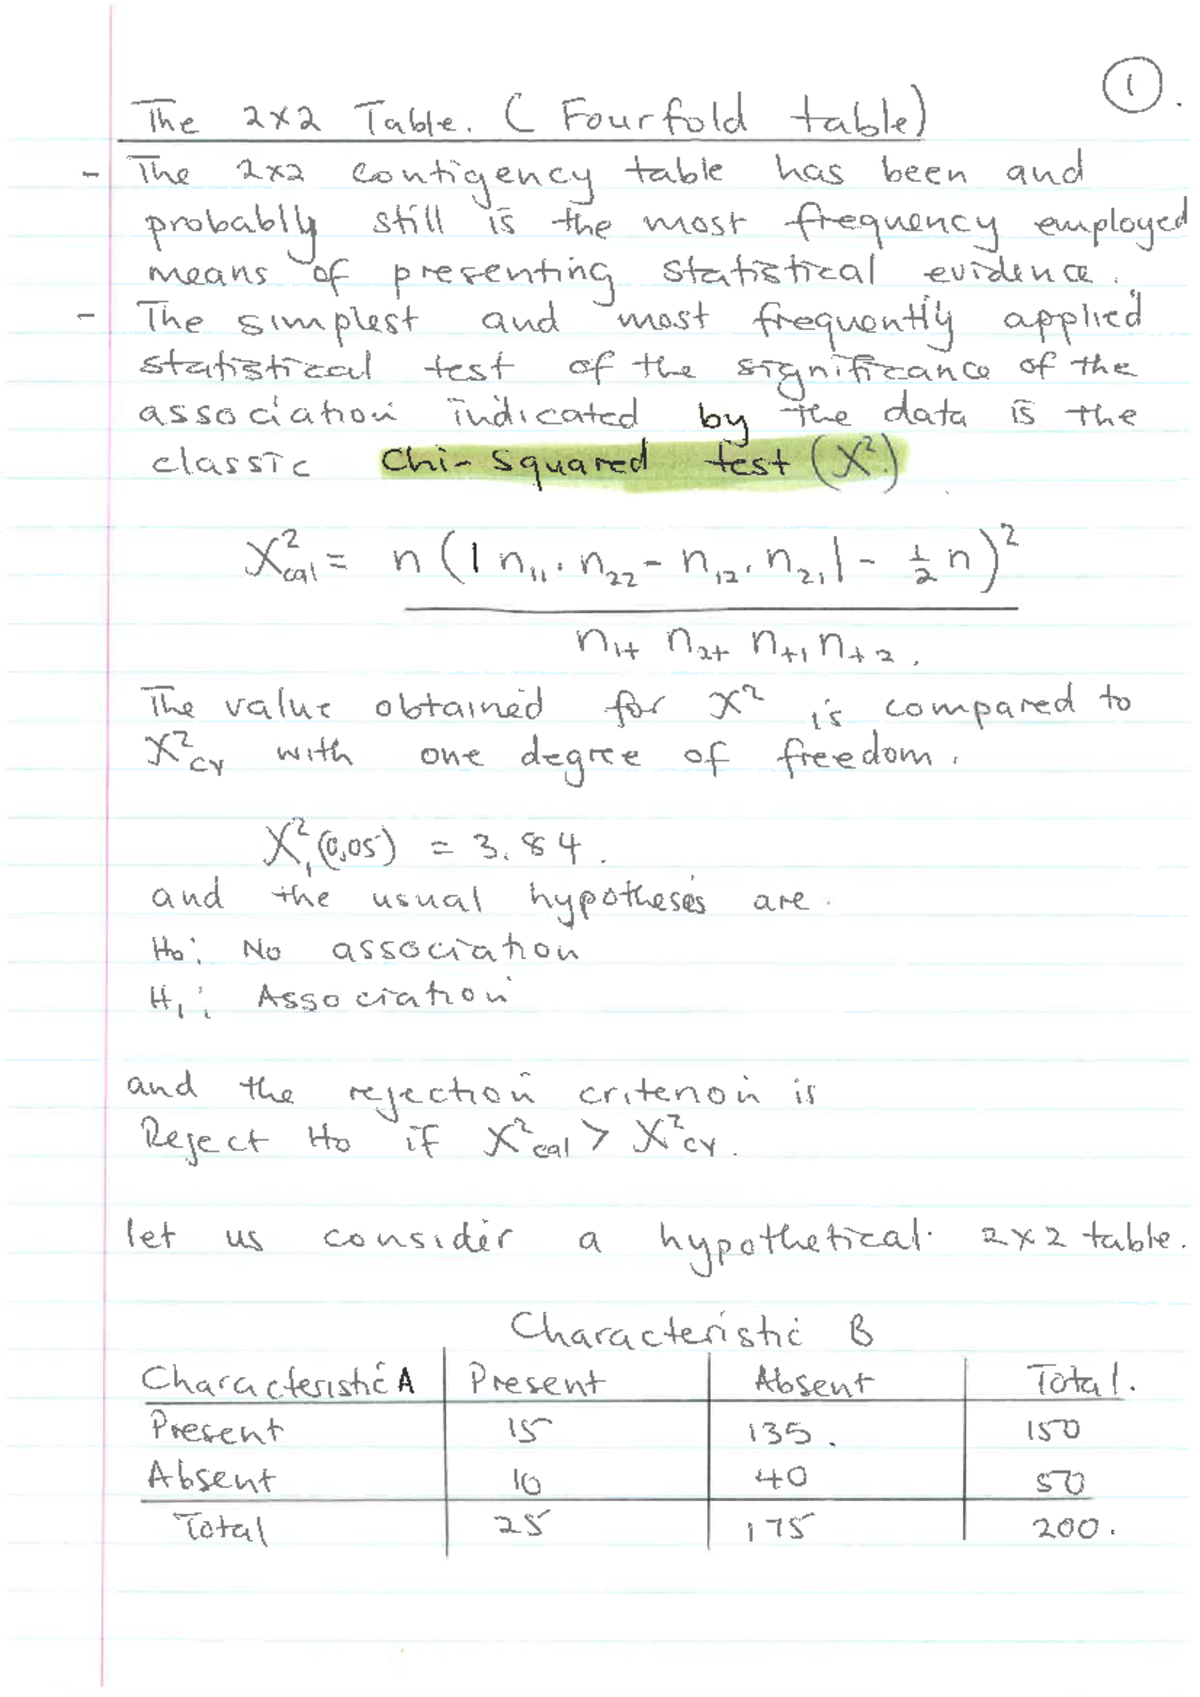 1.
The 2x2 Table. (Fourfold table)
- The 2x2 contigency table has been and
probablly still is the most frequency employed
means of presenting statistical evidence.
- The simplest and most frequently applied
statistical test of the significance of the
association indicated by the data is the
classic Chi-squared test (X².)
X²cal = n(|n₁₁.n₂₂ - n₁₂.n₂₁| - ½n)²
n₁₊ n₂₊ n₊₁ n₊₂.
The value obtained for X² is compared to
X²cr with one degree of freedom.
X²₁(0,05) = 3.84.
and the usual hypotheses are.
H₀: No association
H₁: Association
and the rejection criterion is
Reject H₀ if X²cal > X²cr.
let us consider a hypothetical. 2x2 table.
Characteristic B
Characteristic A Present Absent Total.
Present 15 135. 150
Absent 10 40 50
Total 25 175 200.